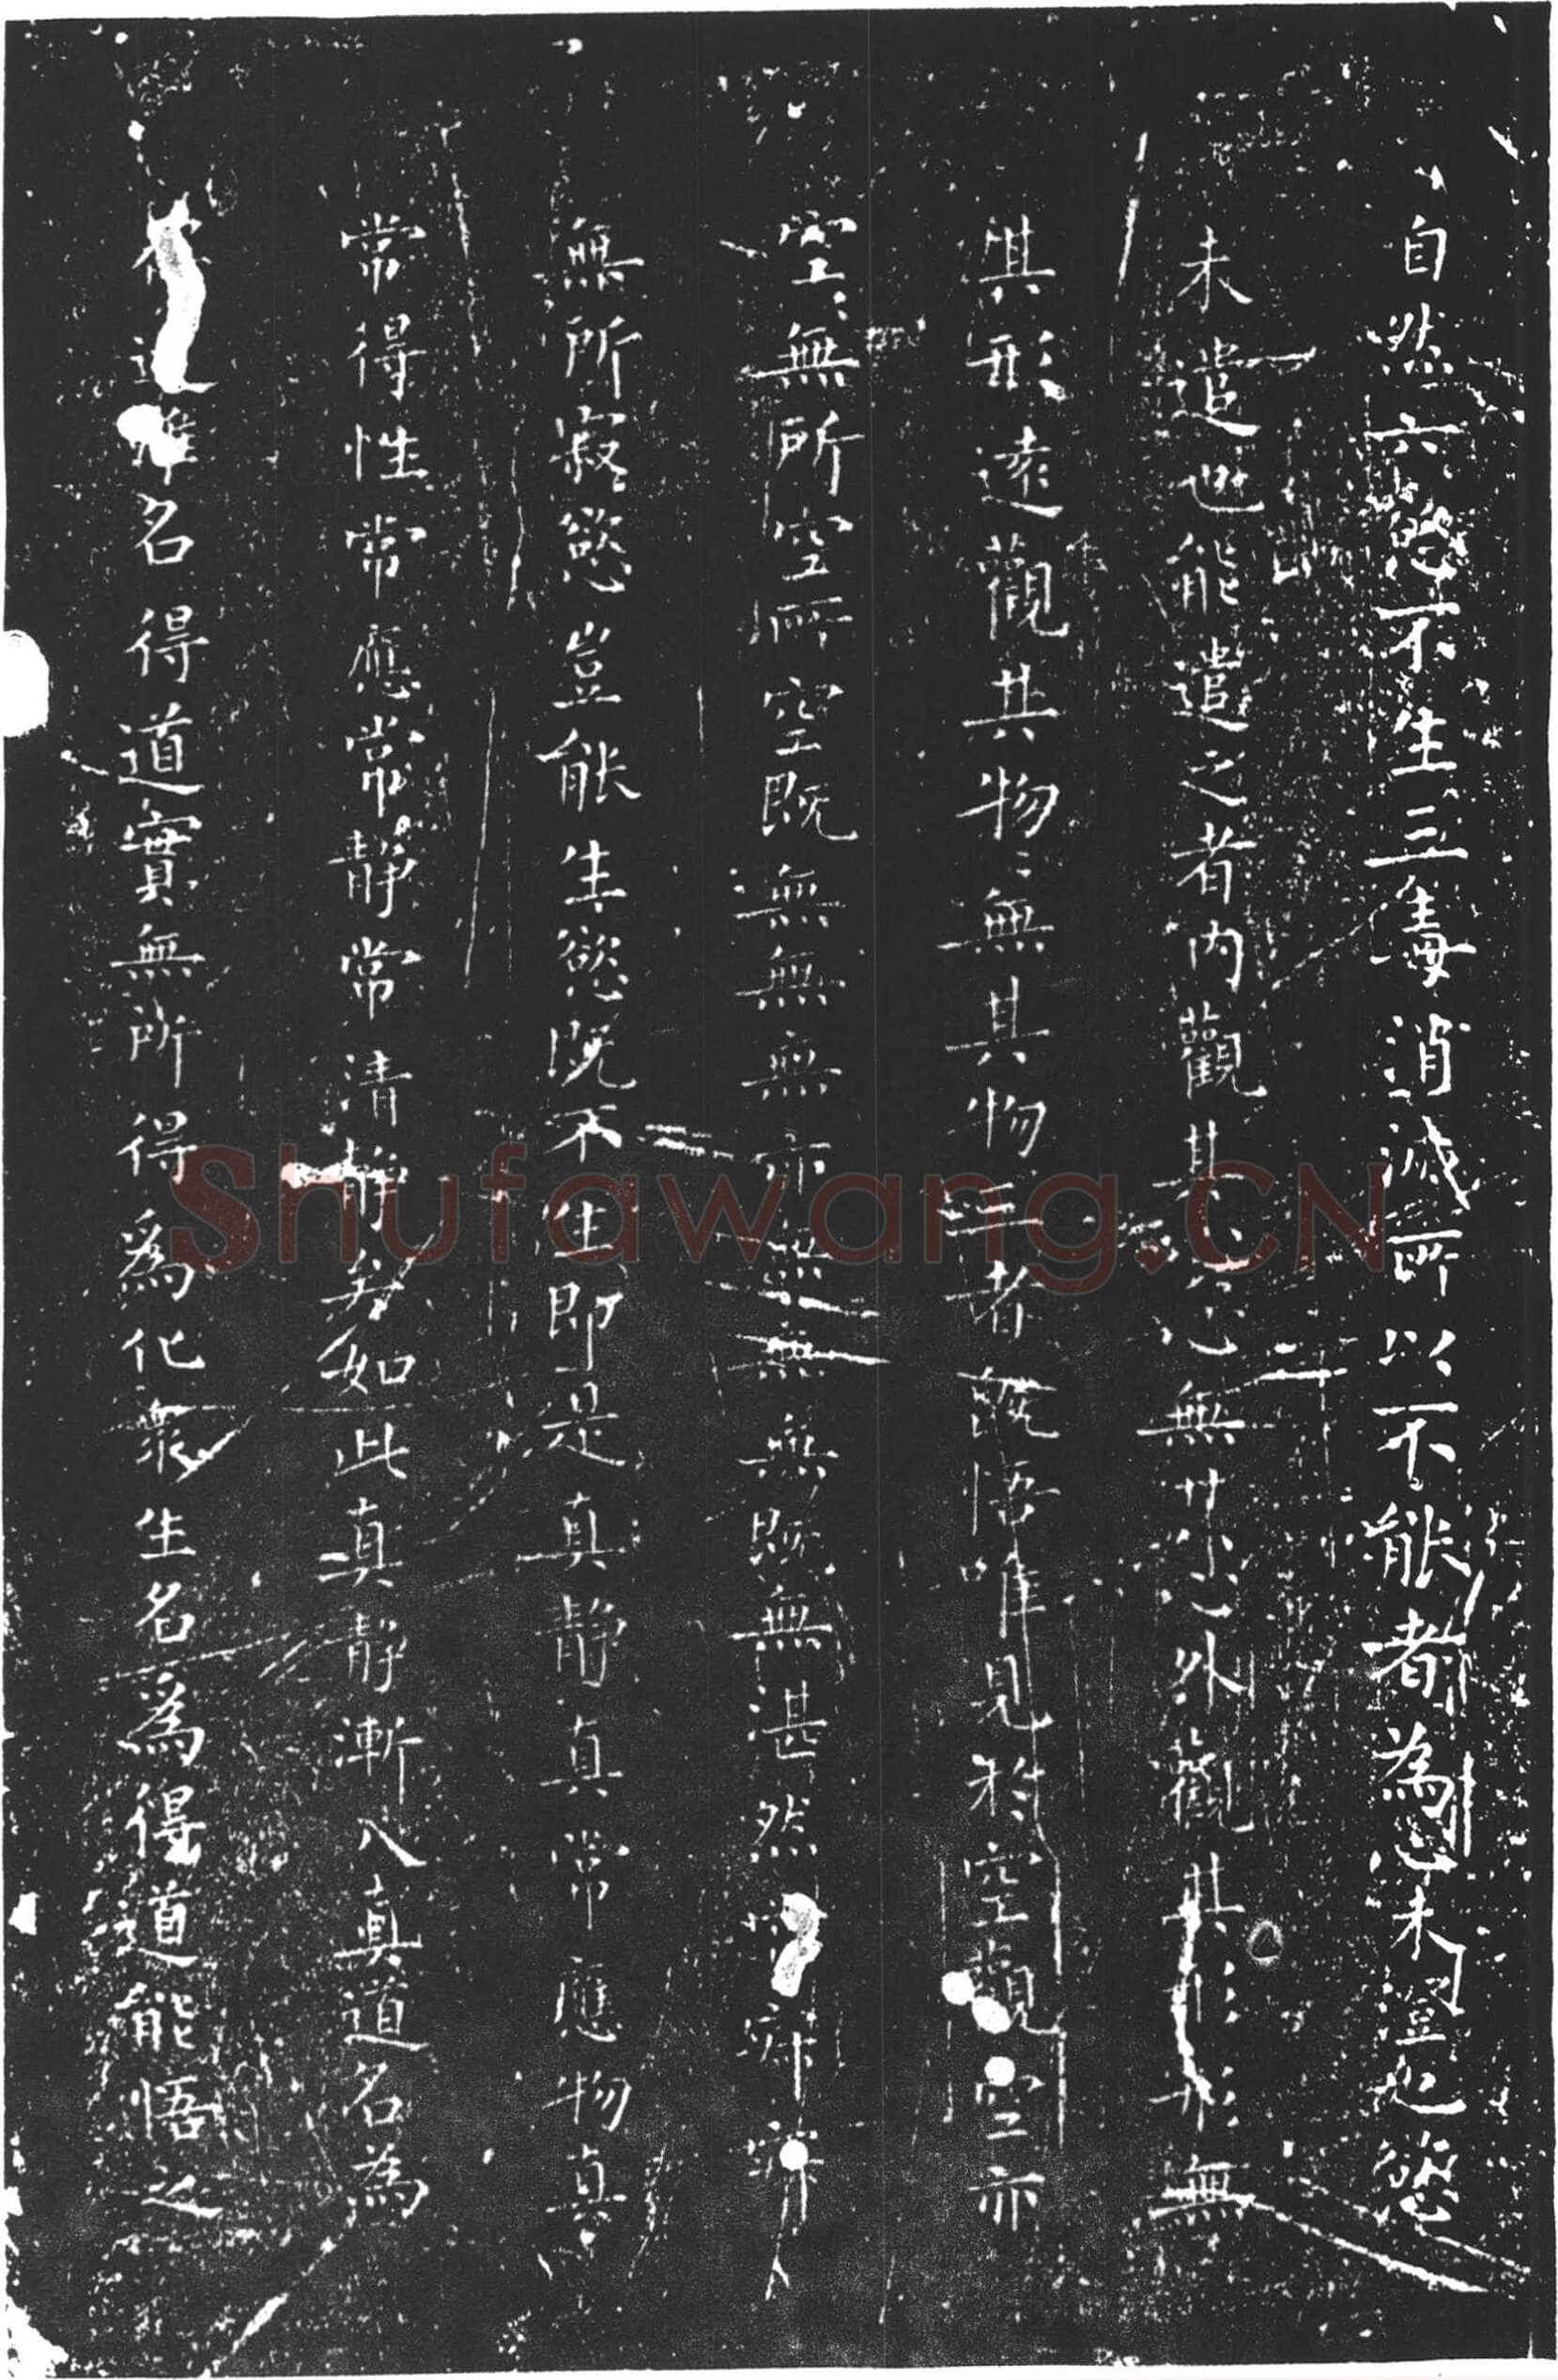 自然六慾不生三毒消滅所以不能者為心未澄也慾
未遣也能遣之者內觀其心心無其心外觀其形形無
其形遠觀其物〻無其物三者既悟唯見於空觀空亦
空〻無所空所空既無無無亦無無無既無湛然常寂寂
無所寂慾豈能生慾既不生即是真静真常應物真
常得性常應常静常清静矣如此真静漸入真道名為
道雖名得道實無所得為化衆生名為得道能悟之
Shufawang.CN